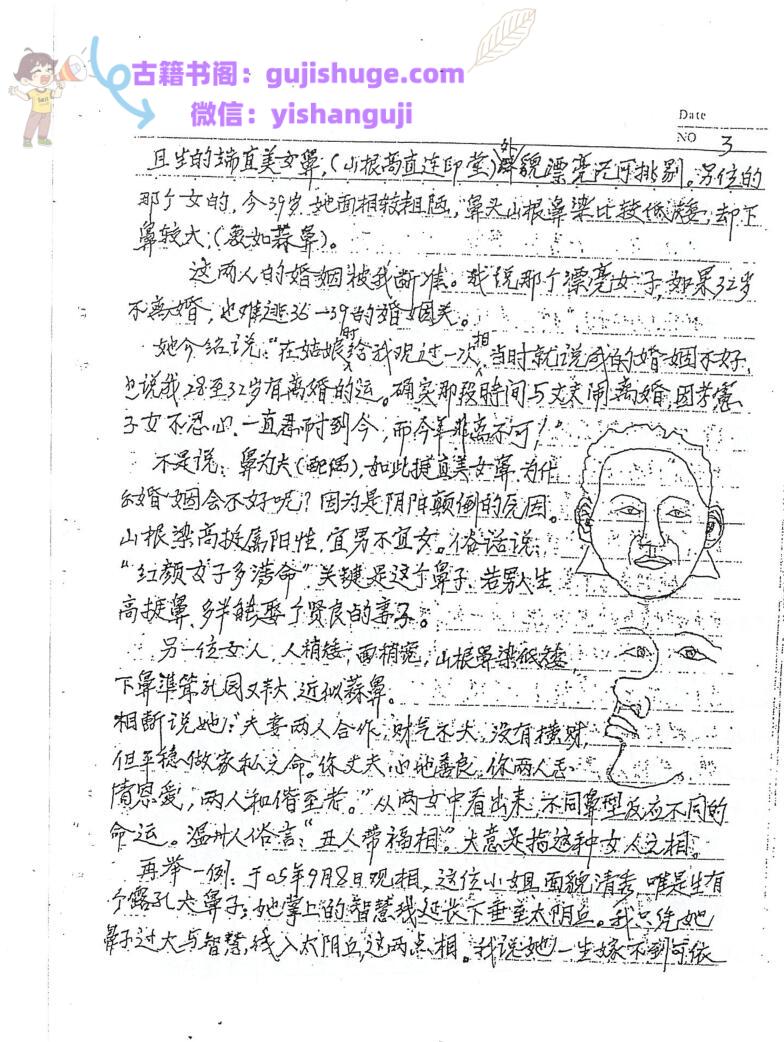 古籍书阁：gujishuge.com
微信：yishanguji
Date
NO 3
且生的端直美女鼻，(山根高直连印堂)外貌漂亮没可挑剔。另位的
那个女的，今39岁，她面相较粗陋，鼻头山根鼻梁比较低矮，却下
鼻较大，(要如蒜鼻)。
这两人的婚姻被我断准。我说那个漂亮女子，如果32岁
不离婚，也难逃36—39的婚姻关。
她介绍说："在姑娘时给我观过一次相，当时就说我的婚姻不好，
也说我28至32岁有离婚的运。确实那段时间与丈夫闹离婚，因考虑
子女不忍心，一直忍耐到今，而今年非离不可！"
不是说：鼻为夫(配偶)，如此挺直美女鼻，为什
么婚姻会不好呢？因为是阴阳颠倒的原因。
山根梁高挺属阳性，宜男不宜女。俗话说：
"红颜女子多薄命"关键是这个鼻子，若男人生
高挺鼻，多半能娶个贤良的妻子。
另一位女人，人稍矮，面稍宽，山根鼻梁低矮，
下鼻準笫孔园又大，近似蒜鼻。
相断说她："夫妻两人合作，财气不大，没有横财，
但平稳做家私之命。你丈夫心地善良，你两人
情恩爱，两人和偕至老。"从两女中看出来，不同鼻型反应不同的
命运。温州人俗言："丑人带福相"。大意是指这种女人之相。
再举一例：于05年9月8日观相，这位小姐面貌清秀，唯是生有
个露孔大鼻子；她掌上的智慧线延长下垂至太阴丘。我只给她
鼻子过大与智慧线入太阴丘，这两点相。我说她一生嫁不到可依